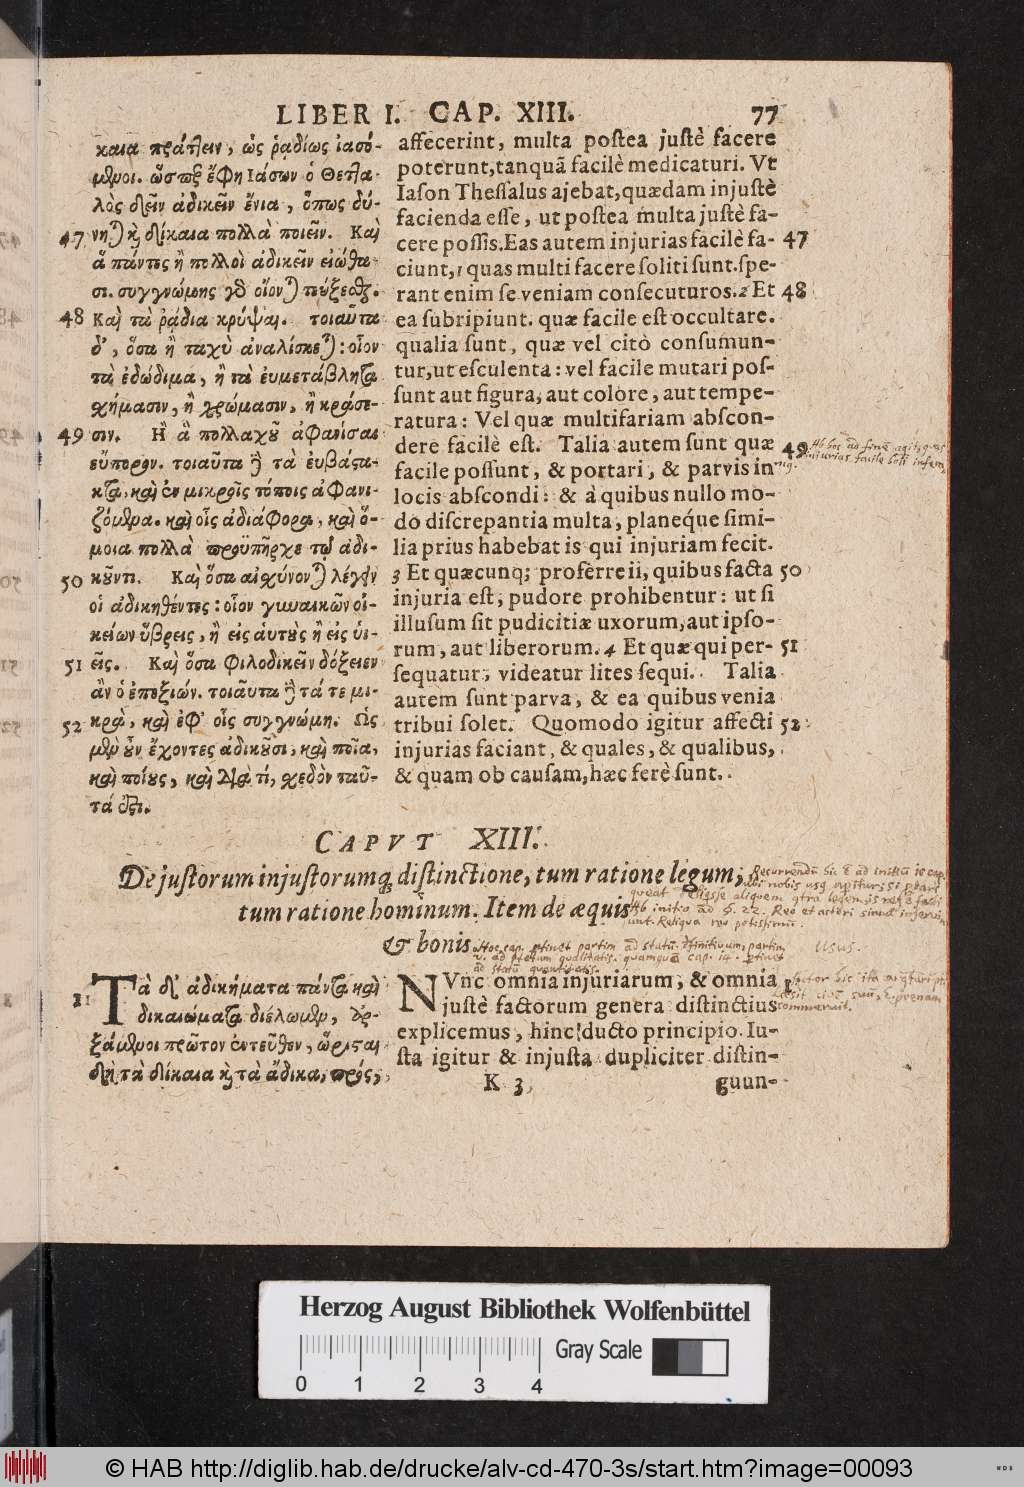 LIBER I. CAP. XIII. 77
καια πράττειν, ὡς ῥᾳδίως ἰασό-
μϑροι. ὥσπερ ἔφη Ιάσων ὁ Θετλα-
λὸς δεῖν ἀδικεῖν ἔνια, ὅπως δύ-
47 νηται καὶ δίκαια πολλὰ ποιεῖν. Καὶ
ἃ πάντες ἢ πολλοὶ ἀδικεῖν εἰώθα-
σι. συγγνώμης γὸ οἴονται τεύξεσθαι.
48 Καὶ τὰ ῥᾴδια κρύψαι. τοιαῦτα
δ', ὅσα ἢ ταχὺ ἀναλίσκεται: οἷον
τὰ ἐδώδιμα, ἢ τὰ εὐμετάβλητα
σχήμασιν, ἢ χρώμασιν, ἢ κράσε-
49 σιν. Ἢ ἃ πολλαχοῦ ἀφανίσαι
εὔπορον. τοιαῦτα ἢ τὰ εὐβάστα-
κτα, καὶ ἐν μικροῖς τόποις ἀφανι-
ζόμενα. καὶ οἷς ἀδιάφορα, καὶ ὅ-
μοια πολλὰ προϋπῆρχε τῷ ἀδι-
50 κοῦντι. Καὶ ὅσα αἰσχύνονται λέγειν
οἱ ἀδικηθέντες: οἷον γυναικῶν οἰ-
κείων ὕβρεις, ἢ εἰς αὑτοὺς ἢ εἰς υἱ-
51 εῖς. Καὶ ὅσα φιλοδικεῖν δόξειεν
ἂν ὁ ἐπεξιών. τοιαῦτα ἢ τά τε μι-
52 κρὰ, καὶ ἐφ' οἷς συγγνώμη. Ὡς
μὲν οὖν ἔχοντες ἀδικοῦσι, καὶ ποῖα,
καὶ ποίους, καὶ διὰ τί, σχεδὸν ταῦ-
τά ἐστι.
affecerint, multa postea justè facere
poterunt, tanquã facilè medicaturi. Vt
Iason Thessalus ajebat, quædam injustè
facienda esse, ut postea multa justè fa-
cere possis. Eas autem injurias facilè fa- 47
ciunt, 1 quas multi facere soliti sunt. spe-
rant enim se veniam consecuturos. 2 Et 48
ea subripiunt. quæ facile est occultare.
qualia sunt, quæ vel citò consumun-
tur, ut esculenta: vel facile mutari pos-
sunt aut figura, aut colore, aut tempe-
ratura: Vel quæ multifariam abscon-
dere facilè est. Talia autem sunt quæ 49
facile possunt, & portari, & parvis in
locis abscondi: & à quibus nullo mo-
do discrepantia multa, planeq́ue simi-
lia prius habebat is qui injuriam fecit.
3 Et quæcunq; proferre ii, quibus facta 50
injuria est, pudore prohibentur: ut si
illusum sit pudicitiæ uxorum, aut ipso-
rum, aut liberorum. 4 Et quæ qui per- 51
sequatur, videatur lites sequi. Talia
autem sunt parva, & ea quibus venia
tribui solet. Quomodo igitur affecti 52
injurias faciant, & quales, & qualibus,
& quam ob causam, hæc ferè sunt.
CAPVT XIII.
De justorum injustorumq; distinctione, tum ratione legum,
tum ratione hominum. Item de æquis
& bonis.
Hoc cap. ptinet partim ad statũ finitivum, partim
Usus.
1 Τὰ δὲ ἀδικήματα πάντα καὶ
δικαιώματα διέλωμεν, ἀρ-
ξάμενοι πρῶτον ἐντεῦθεν, ὥρισται
δὴ τὰ δίκαια καὶ τὰ ἄδικα, πρός,
NVnc omnia injuriarum, & omnia 1
justè factorum genera distinctius
explicemus, hinc ducto principio. Iu-
sta igitur & injusta dupliciter distin-
K 3 guun-
Herzog August Bibliothek Wolfenbüttel
Gray Scale
0 1 2 3 4
© HAB http://diglib.hab.de/drucke/alv-cd-470-3s/start.htm?image=00093